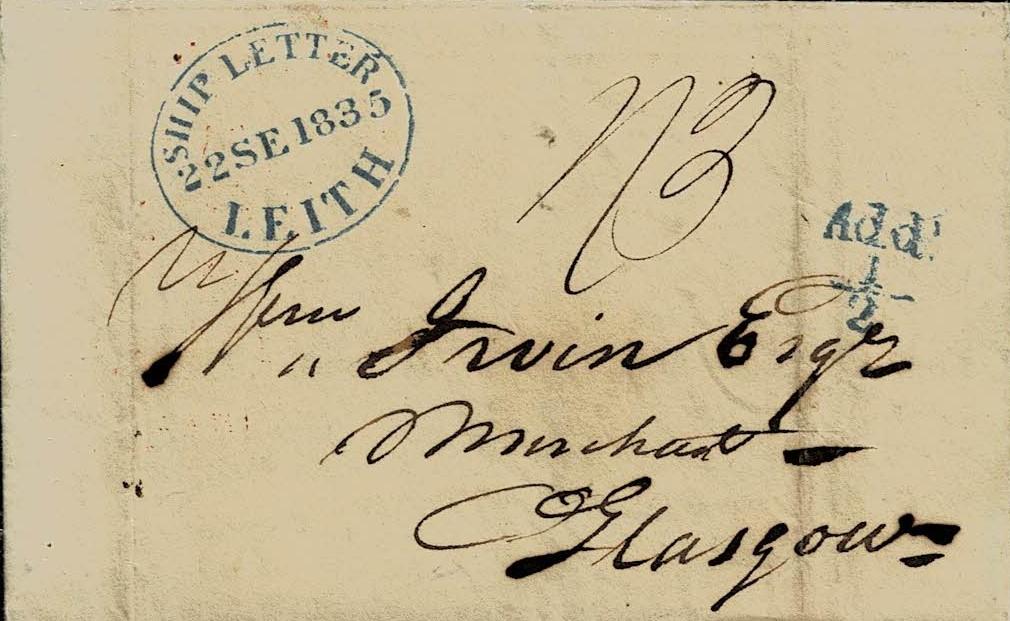 SHIP LETTER
22SE1835
LEITH
Addl
1/2
Wm Irvin Esqr
Merchant
Glasgow